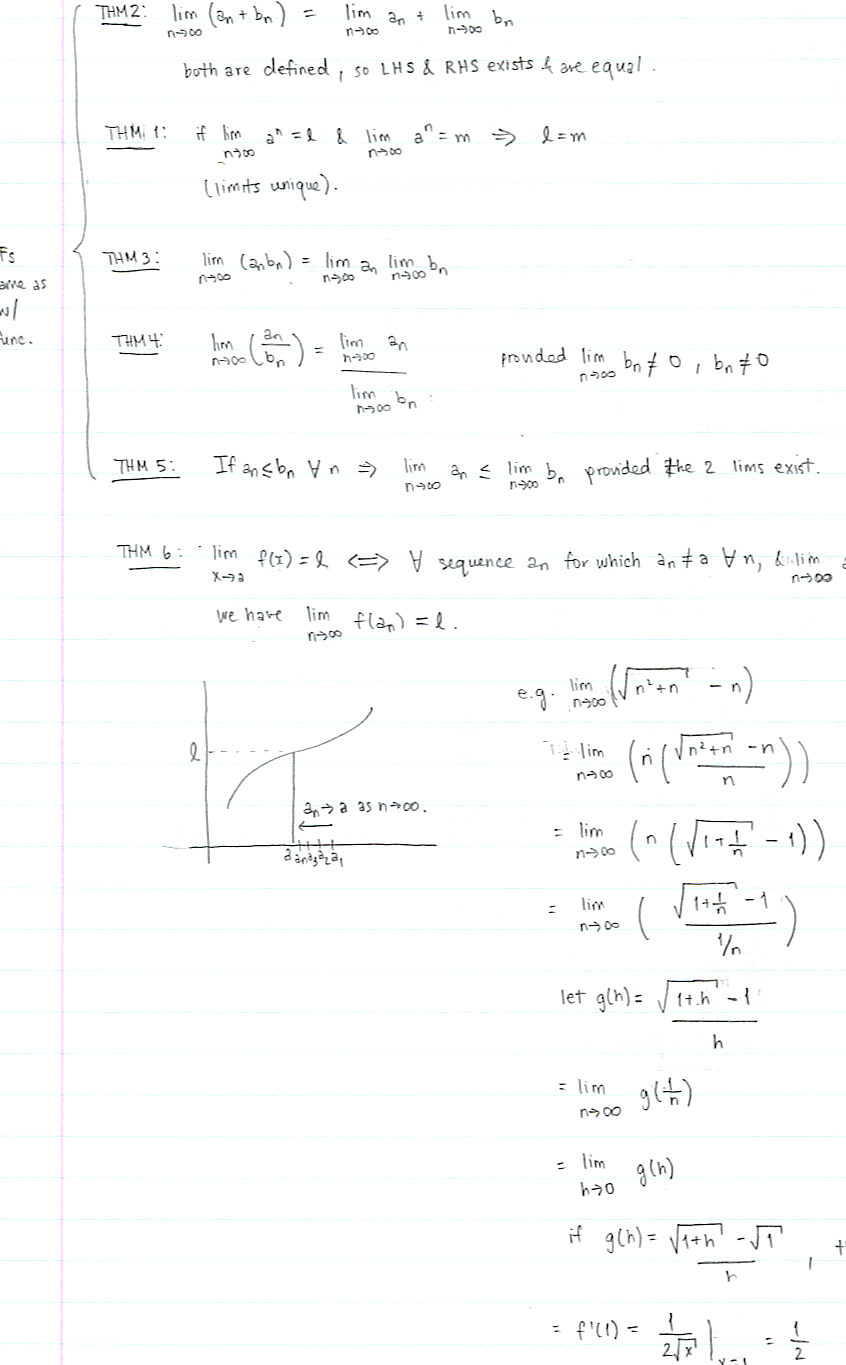 THM 2: lim n→∞ (an + bn) = lim n→∞ an + lim n→∞ bn
both are defined, so LHS & RHS exists & are equal.
THM 1: if lim n→∞ aⁿ = l & lim n→∞ aⁿ = m ⇒ l = m
(limits unique).
Fs
ame as
w/
func.
THM 3: lim n→∞ (anbn) = lim n→∞ an lim n→∞ bn
THM 4: lim n→∞ (an/bn) = lim n→∞ an / lim n→∞ bn provided lim n→∞ bn ≠ 0, bn ≠ 0
THM 5: If an ≤ bn ∀ n ⇒ lim n→∞ an ≤ lim n→∞ bn provided the 2 lims exist.
THM 6: lim x→a f(x) = l <=> ∀ sequence an for which an ≠ a ∀ n, & lim n→∞ a
we have lim n→∞ f(an) = l.
l
an → a as n→∞.
a an a3 a2 a1
e.g. lim n→∞ (√(n²+n) - n)
= lim n→∞ (n((√(n²+n) - n)/n))
= lim n→∞ (n(√(1+1/n) - 1))
= lim n→∞ ((√(1+1/n) - 1)/(1/n))
let g(h) = (√(1+h) - 1)/h
= lim n→∞ g(1/n)
= lim h→0 g(h)
if g(h) = (√(1+h) - √1)/h , t
= f'(1) = 1/(2√x) | x=1 = 1/2